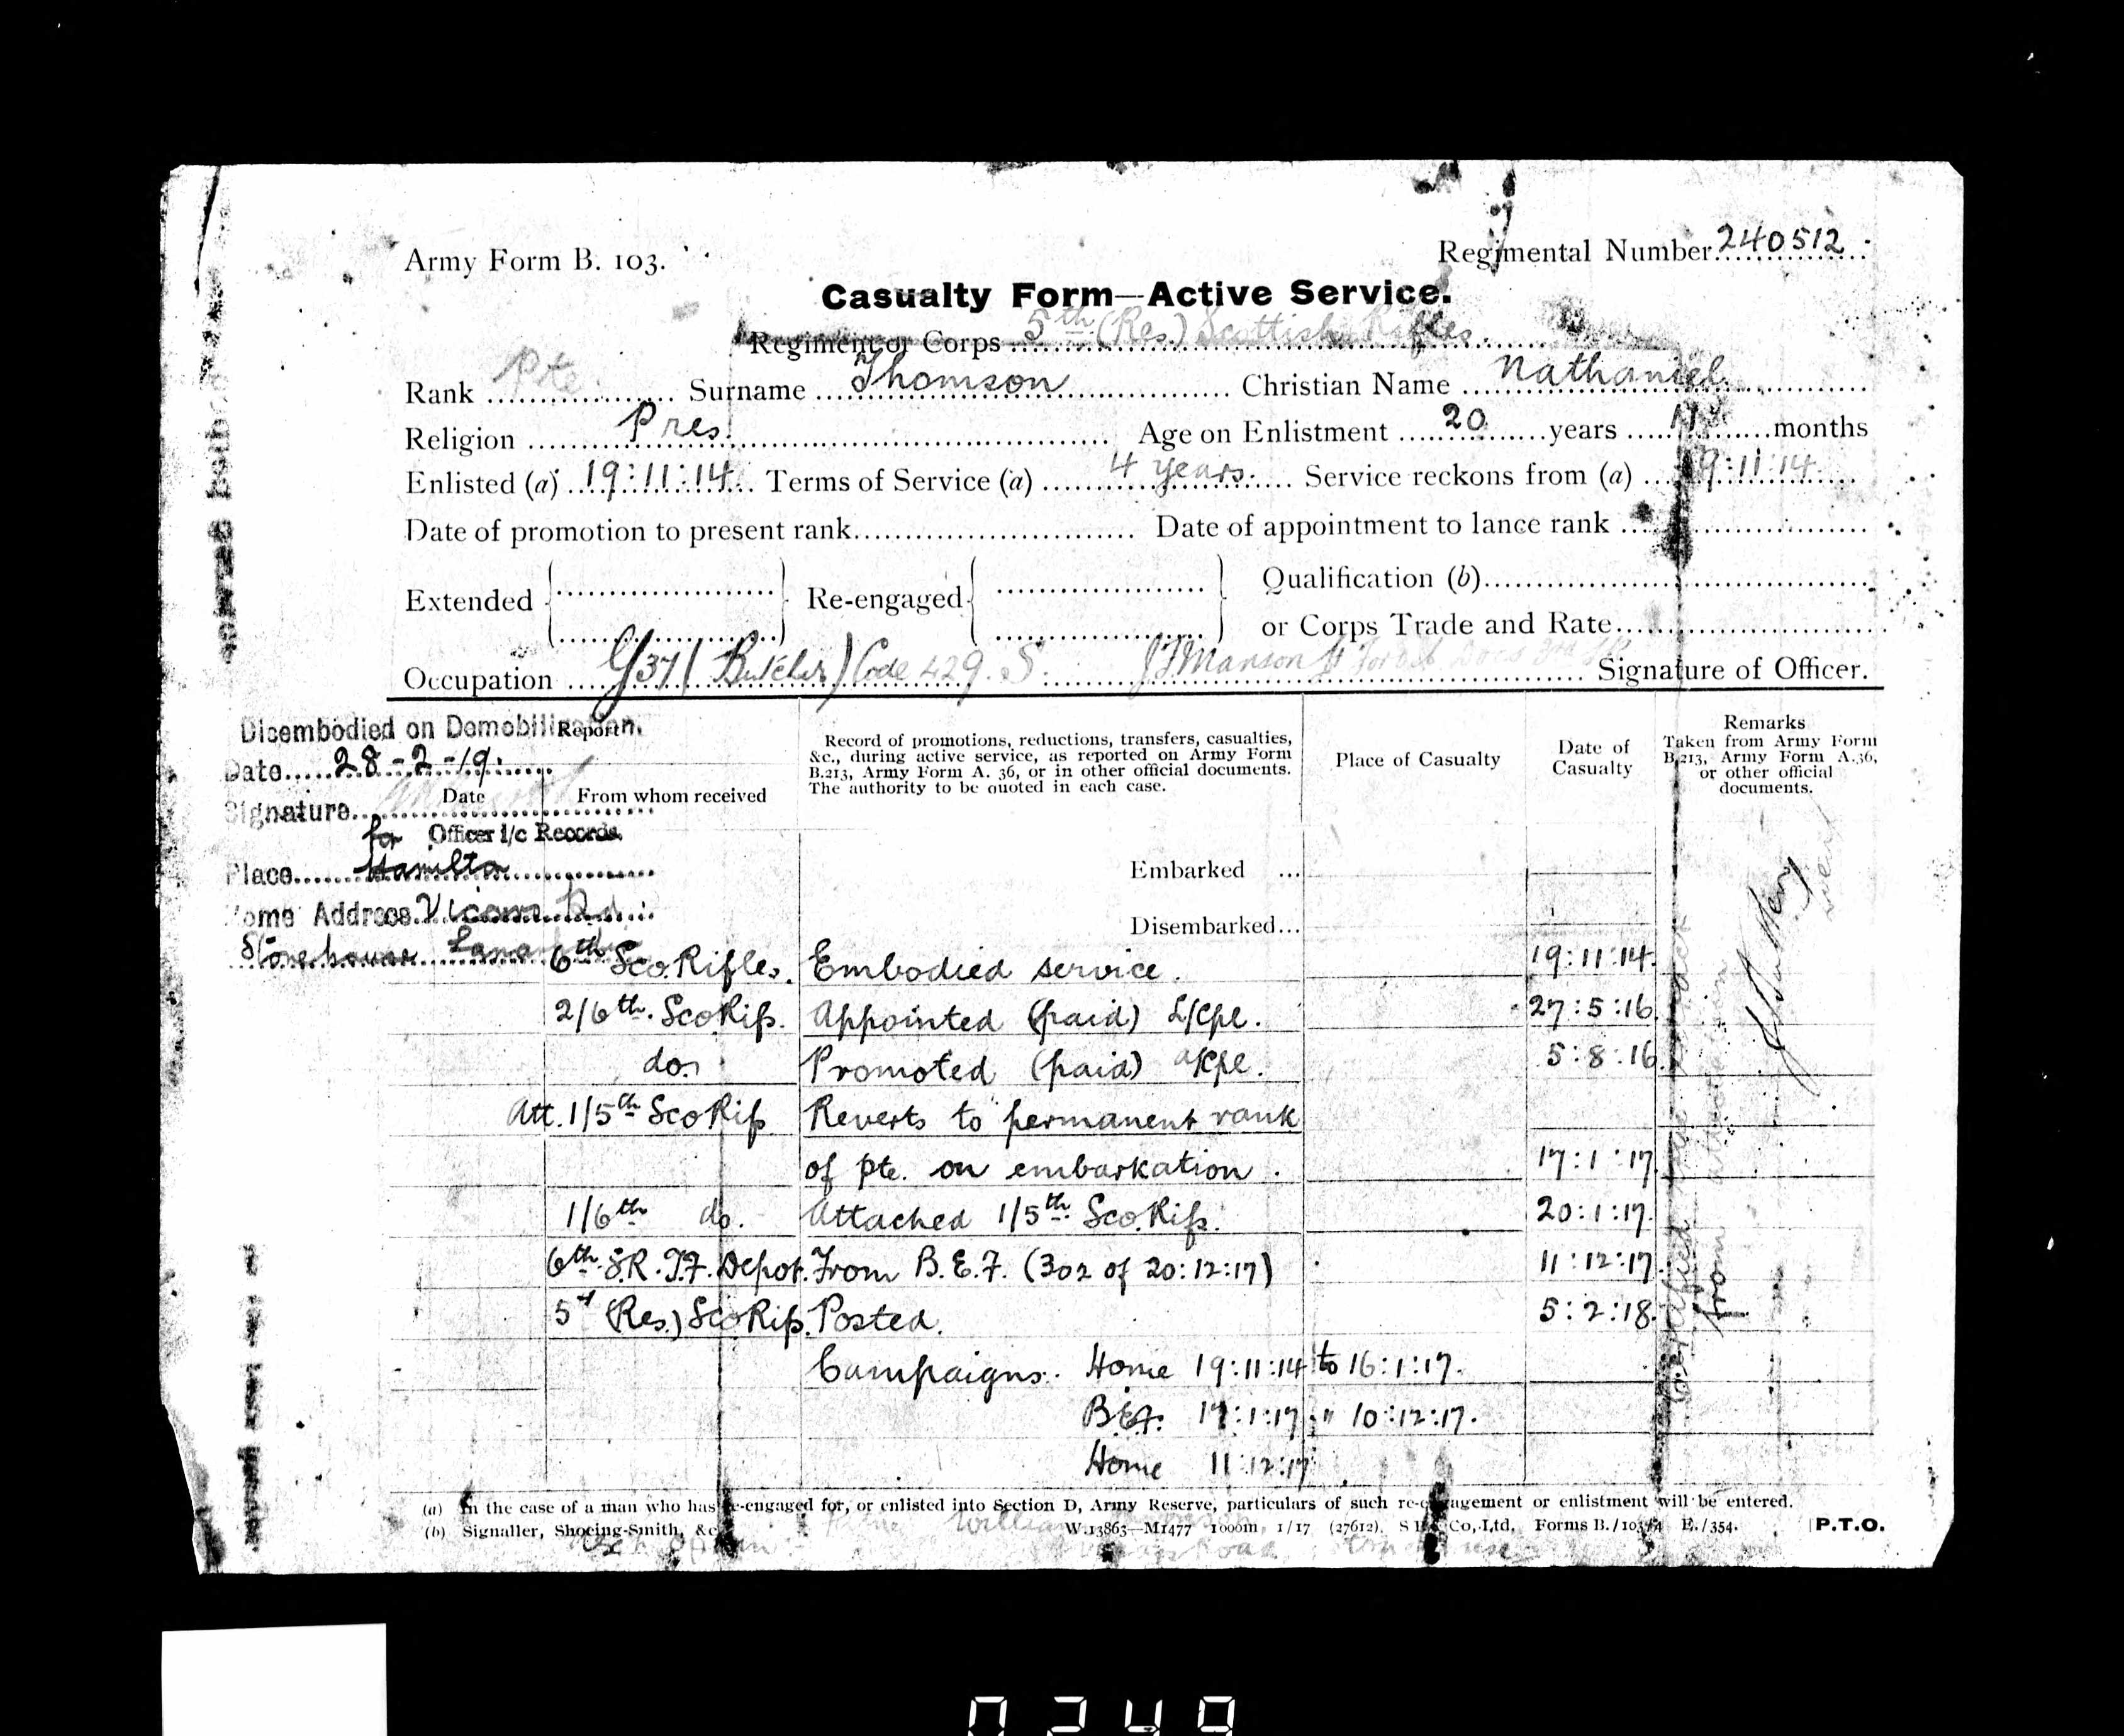 Army Form B. 103.
Regimental Number 240512
Casualty Form—Active Service.
Regiment or Corps 5th (Res.) Scottish Rifles.
Rank Pte. Surname Thomson Christian Name Nathaniel
Religion Pres. Age on Enlistment 20 years 11 months
Enlisted (a) 19:11:14. Terms of Service (a) 4 years. Service reckons from (a) 19:11:14.
Date of promotion to present rank Date of appointment to lance rank
Extended Re-engaged Qualification (b)
or Corps Trade and Rate
Occupation (Butcher) Code 429. S. Signature of Officer.
Disembodied on Demobilization.
Date 28-2-19.
Signature
for Officer i/c Records.
Place Hamilton
Home Address Vicars Rd.
Stonehouse
Report
Date From whom received
Record of promotions, reductions, transfers, casualties,
&c., during active service, as reported on Army Form
B.213, Army Form A. 36, or in other official documents.
The authority to be quoted in each case.
Place of Casualty
Date of
Casualty
Remarks
Taken from Army Form
B.213, Army Form A.36,
or other official
documents.
Embarked ...
Disembarked...
6th Sco. Rifles. Embodied service. 19:11:14.
2/6th. Sco Rifs. Appointed (paid) L/Cpl. 27:5:16
do. Promoted (paid) a/Cpl. 5:8:16
Att. 1/5th Sco Rifs Reverts to permanent rank
of pte. on embarkation. 17:1:17.
1/6th do. Attached 1/5th Sco. Rifs. 20:1:17.
6th S.R. T.F. Depot. From B.E.F. (302 of 20:12:17) 11:12:17.
5th (Res.) Sco Rifs. Posted. 5:2:18.
Campaigns: Home 19:11:14 to 16:1:17.
B.E.F. 17:1:17 " 10:12:17.
Home 11:12:17
from
(a) In the case of a man who has re-engaged for, or enlisted into Section D, Army Reserve, particulars of such re-engagement or enlistment will be entered.
(b) Signaller, Shoeing-Smith, &c
W.13863—M1477 1000m 1/17 (27612). Co, Ltd, Forms B./103/4 E./354.
P.T.O.
William
0249